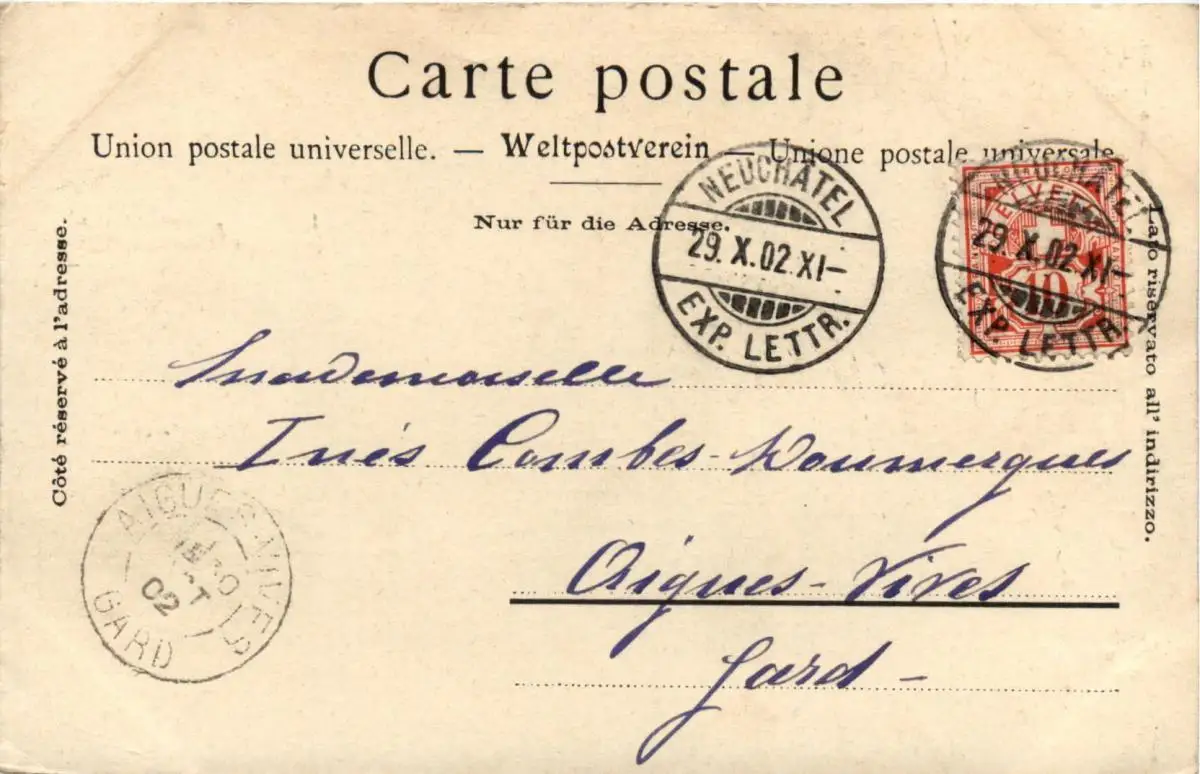 Carte postale
Union postale universelle. — Weltpostverein — Unione postale universale
Nur für die Adresse.
Côté réservé à l'adresse.
Lato riservato all' indirizzo.
NEUCHATEL
29. X. 02 XI–
EXP. LETTR.
NEUCHATEL
29. X. 02 XI–
EXP. LETTR.
HELVETIA
10
Mademoiselle
Inés Combes-Doumergues
Aigues-Vives
Gard -
AIGUES-VIVES
02
GARD